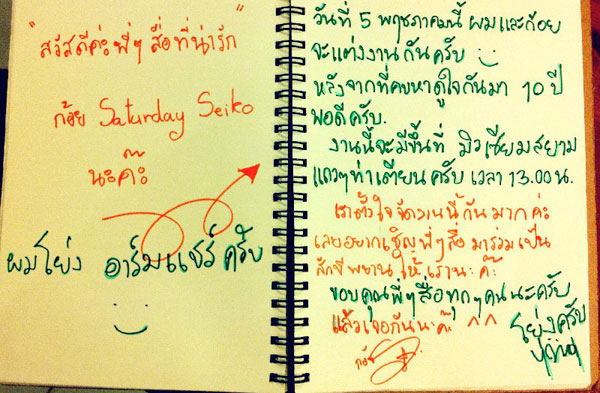 "สวัสดีค่ะพี่ๆ สื่อที่น่ารัก"
ก้อย Saturday Seiko
นะค๊ะ
ผมโย่ง อาร์มแชร์ครับ
วันที่ 5 พฤษภาคมนี้ ผมและก้อย
จะแต่งงานกันครับ
หลังจากที่คบหาดูใจกันมา 10 ปี
พอดีครับ.
งานนี้จะมีขึ้นที่ มิวเซียมสยาม
แถวๆท่าเตียนครับ เวลา 13.00 น.
เราตั้งใจจัดงานนี้กันมากค่ะ
เลยอยากเชิญพี่ๆสื่อ มาร่วมเป็น
สักขีพยานให้เรานะค๊ะ
ขอบคุณพี่ๆสื่อทุกๆคนนะครับ
แล้วเจอกันนะค๊ะ ^^
โย่งครับ
ก้อย